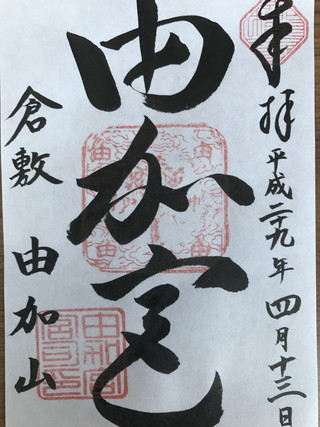 奉拝 平成二十九年 四月十三日
由加宮
倉敷 由加山